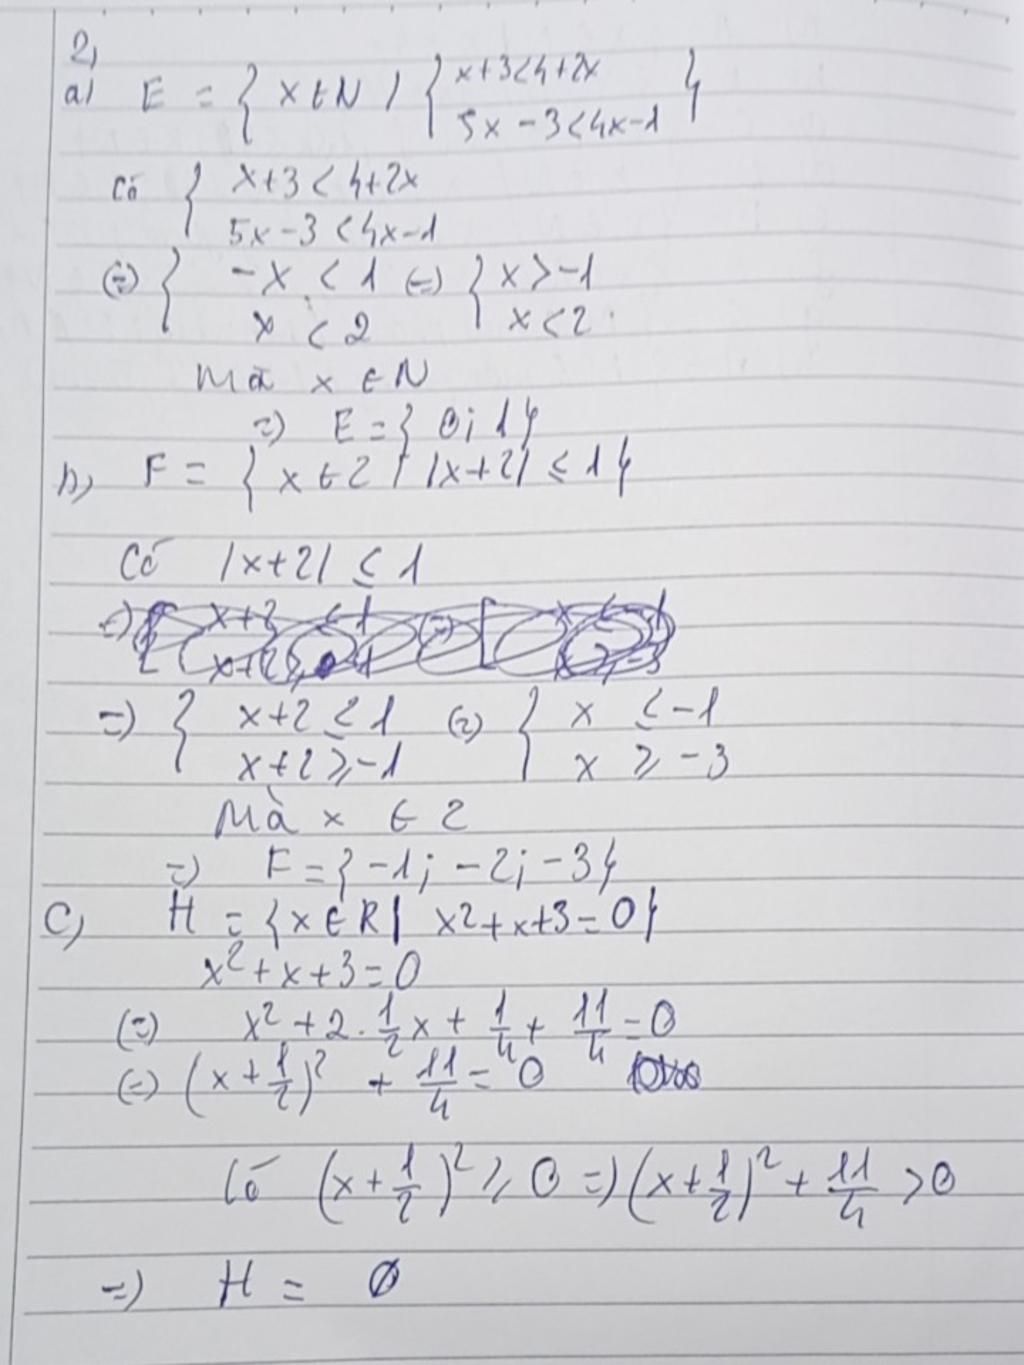 2,
a) E = { x ∈ N / { x+3<4+2x
5x - 3<4x-1 }
Có { x+3<4+2x
5x-3<4x-1
(=) { -x < 1 (=) { x>-1
x < 2 x<2
Mà x ∈ N
=) E = { 0; 1 }
b, F = { x ∈ Z / |x+2| ≤ 1 }
Có |x+2| ≤ 1
=) { x+2 ≤ 1 (=) { x ≤ -1
x+2 ≥ -1 x ≥ -3
Mà x ∈ Z
=) F = { -1; -2; -3 }
C, H = {x ∈ R | x2+x+3=0}
x²+x+3=0
(=) x² + 2 . 1/2 x + 1/4 + 11/4 = 0
(=) (x + 1/2)² + 11/4 = 0
Có (x + 1/2)² ≥ 0 =) (x + 1/2)² + 11/4 > 0
=) H = Ø